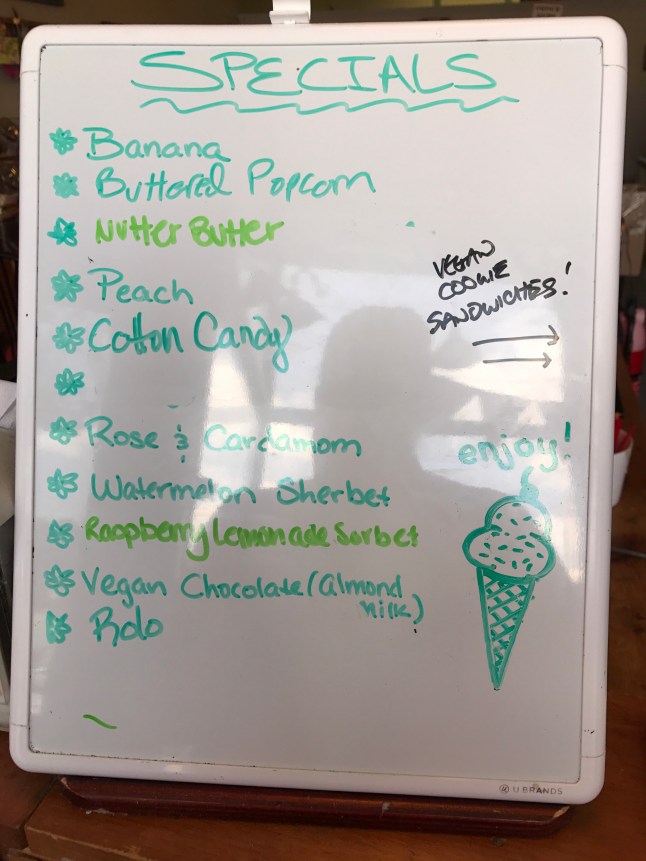 SPECIALS
Banana
Buttered Popcorn
Nutter Butter
Peach
Cotton Candy
Rose & Cardamom
Watermelon Sherbet
Raspberry Lemonade Sorbet
Vegan Chocolate (Almond
milk)
Rolo
VEGAN
COOKIE
SANDWICHES!
enjoy!
U BRANDS